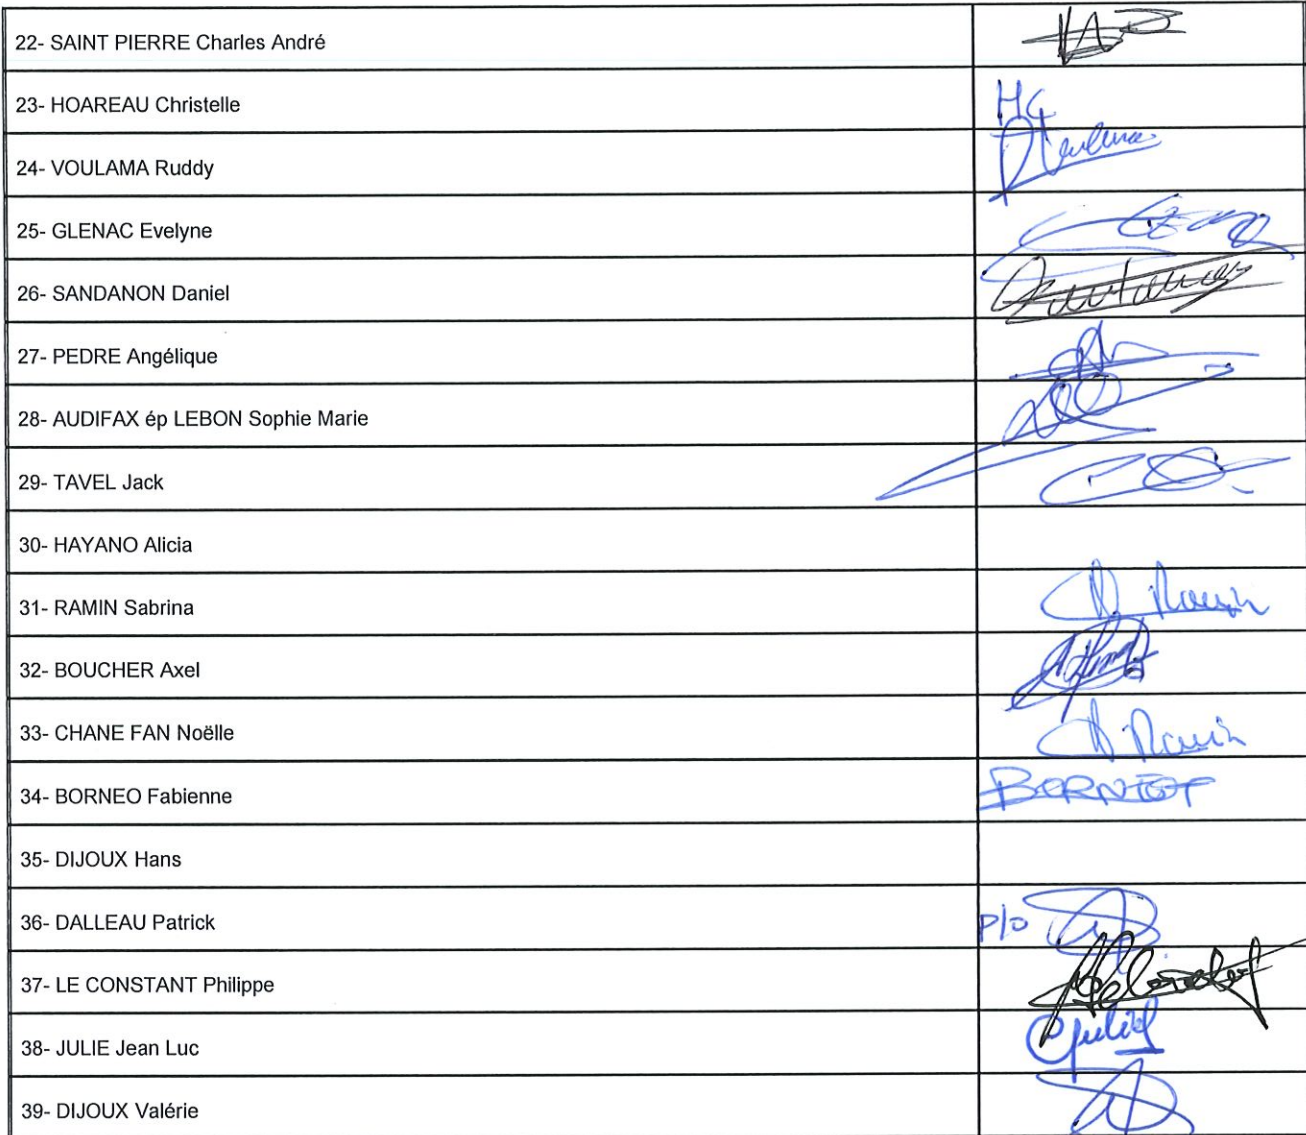 22- SAINT PIERRE Charles André
23- HOAREAU Christelle
HC
24- VOULAMA Ruddy
25- GLENAC Evelyne
26- SANDANON Daniel
27- PEDRE Angélique
28- AUDIFAX ép LEBON Sophie Marie
29- TAVEL Jack
30- HAYANO Alicia
31- RAMIN Sabrina
32- BOUCHER Axel
33- CHANE FAN Noëlle
34- BORNEO Fabienne
35- DIJOUX Hans
36- DALLEAU Patrick
p/o
37- LE CONSTANT Philippe
38- JULIE Jean Luc
39- DIJOUX Valérie